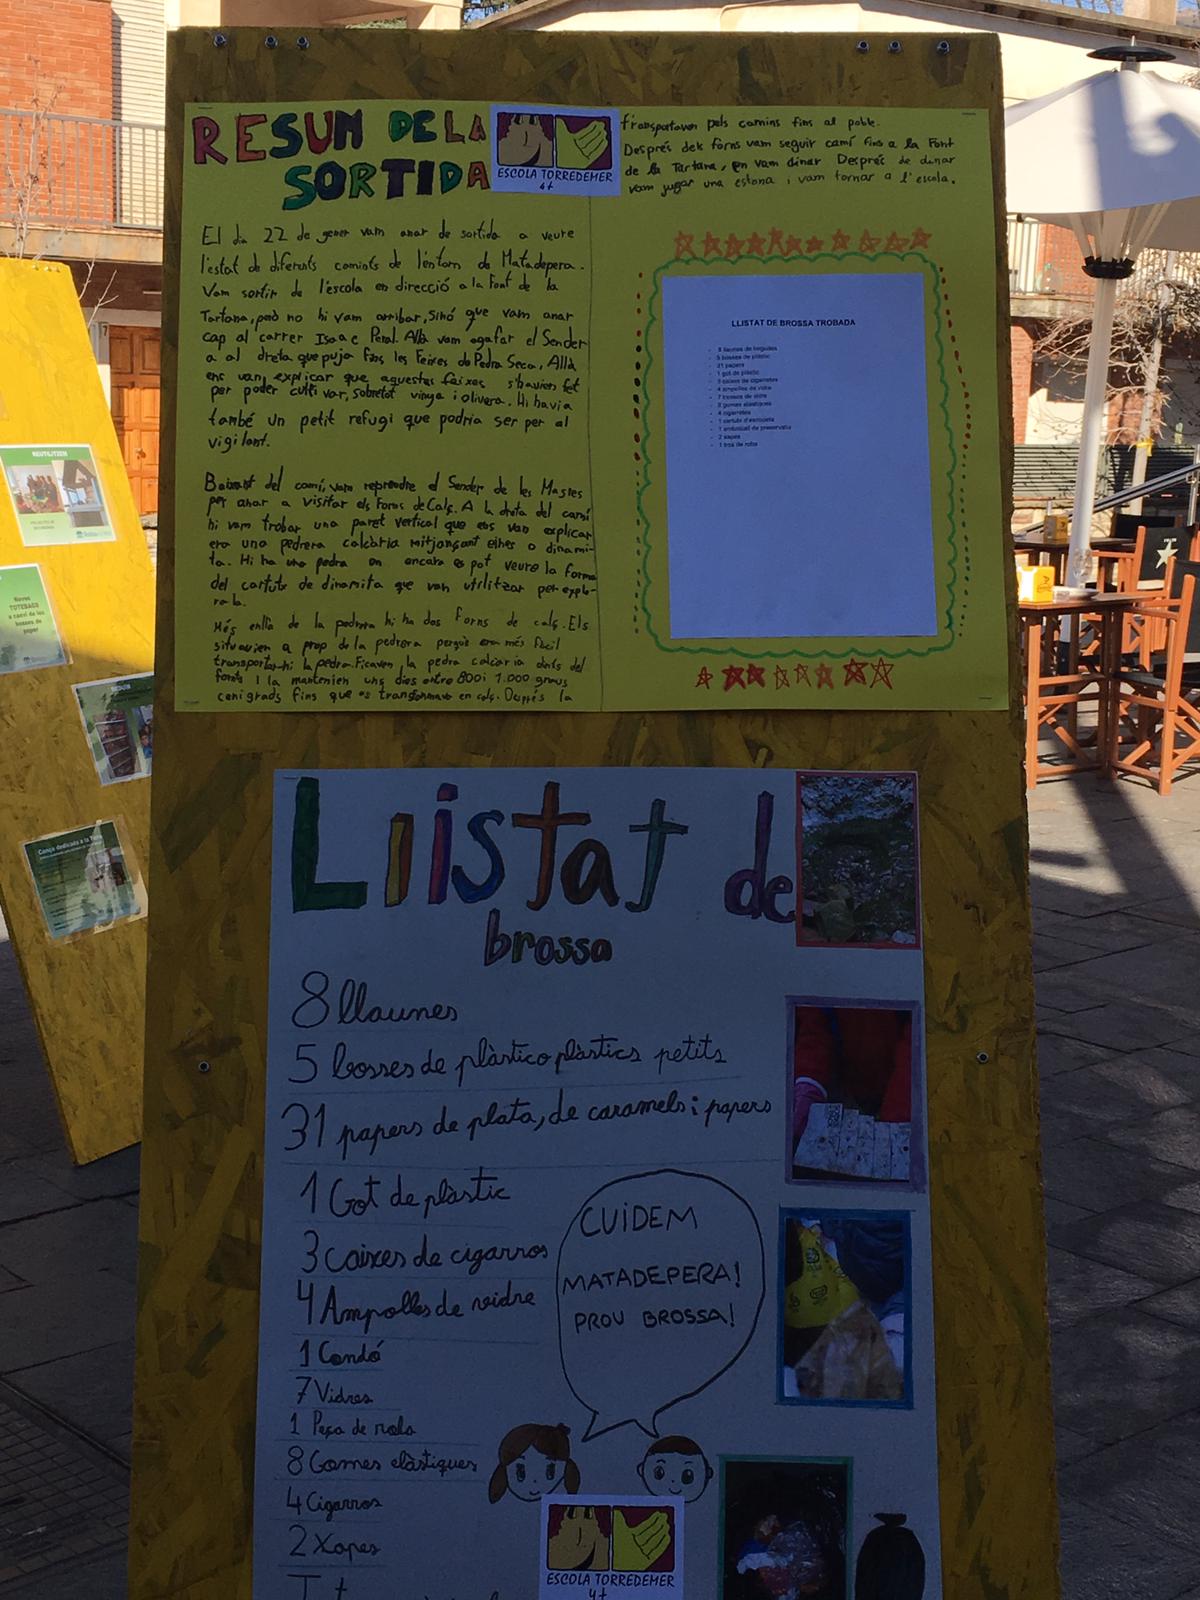 RESUM DE LA
SORTIDA
ESCOLA TORREDEMER
4t
El dia 22 de gener vam anar de sortida a veure
l'estat de diferents camins de l'entorn de Matadepera.
Vam sortir de l'escola en direcció a la Font de la
Tartana, però no hi vam arribar, sinó que vam anar
cap al carrer Isaac Peral. Allà vam agafar el Sender
a al dreta que puja fins les Feixes de Pedra Seca. Allà
ens van explicar que aquestes feixes s'havien fet
per poder cultivar, sobretot vinya i olivera. Hi havia
també un petit refugi que podria ser per al
vigilant.
Baixant del camí, vam reprendre el Sender de les Masies
per anar a visitar els Forns de Calç. A la dreta del camí
hi vam trobar una paret vertical que ens van explicar
era una pedrera calcària mitjançant eines o dinami-
ta. Hi ha una pedra on encara es pot veure la forma
del cartutx de dinamita que van utilitzar per explo-
rar-la.
Més enllà de la pedrera hi ha dos Forns de calç. Els
situavien a prop de la pedrera perquè era més fàcil
transportar-hi la pedra. Ficaven la pedra calcària dints del
forns i la mantenien uns dies entre 800 i 1.000 graus
centígrads fins que es transformava en calç. Després la
transportaven pels camins fins al poble.
Després dels forns vam seguir camí fins a la Font
de la Tartana, on vam dinar. Després de dinar
vam jugar una estona i vam tornar a l'escola.
LLISTAT DE BROSSA TROBADA
- 8 llaunes de begudes
- 5 bosses de plàstic
- 31 papers
- 1 got de plàstic
- 3 caixes de cigarretes
- 4 ampolles de vidre
- 7 trossos de vidre
- 8 gomes elàstiques
- 4 cigarretes
- 1 cartutx d'escopeta
- 1 embolcall de preservatiu
- 2 xapes
- 1 tros de roba
Llistat de
brossa
8 llaunes
5 bosses de plàstic o plàstics petits
31 papers de plata, de caramels i papers
1 Got de plàstic
3 caixes de cigarros
4 Ampolles de vidre
1 Condó
7 Vidres
1 Peça de roba
8 Gomes elàstiques
4 Cigarros
2 Xapes
CUIDEM
MATADEPERA!
PROU BROSSA!
ESCOLA TORREDEMER
4t
REUTILITZEM
Noves
TOTEBAGS
a canvi de les
bosses de
paper
Cançó dedicada a la Terra